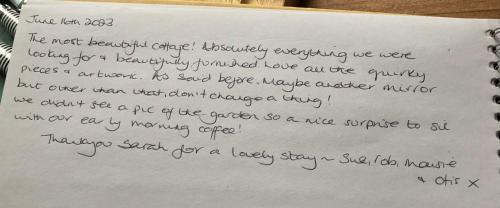 June 16th 2023
The most beautiful cottage! Absolutely everything we were
looking for & beautifully furnished love all the quirky
pieces & artwork. As said before. Maybe another mirror
but other than that, don't change a thing!
We didn't see a pic of the garden so a nice surprise to sit
with our early morning coffee!
Thankyou Sarah for a lovely stay ~ Sue, Rob, Mousie
& Otis X